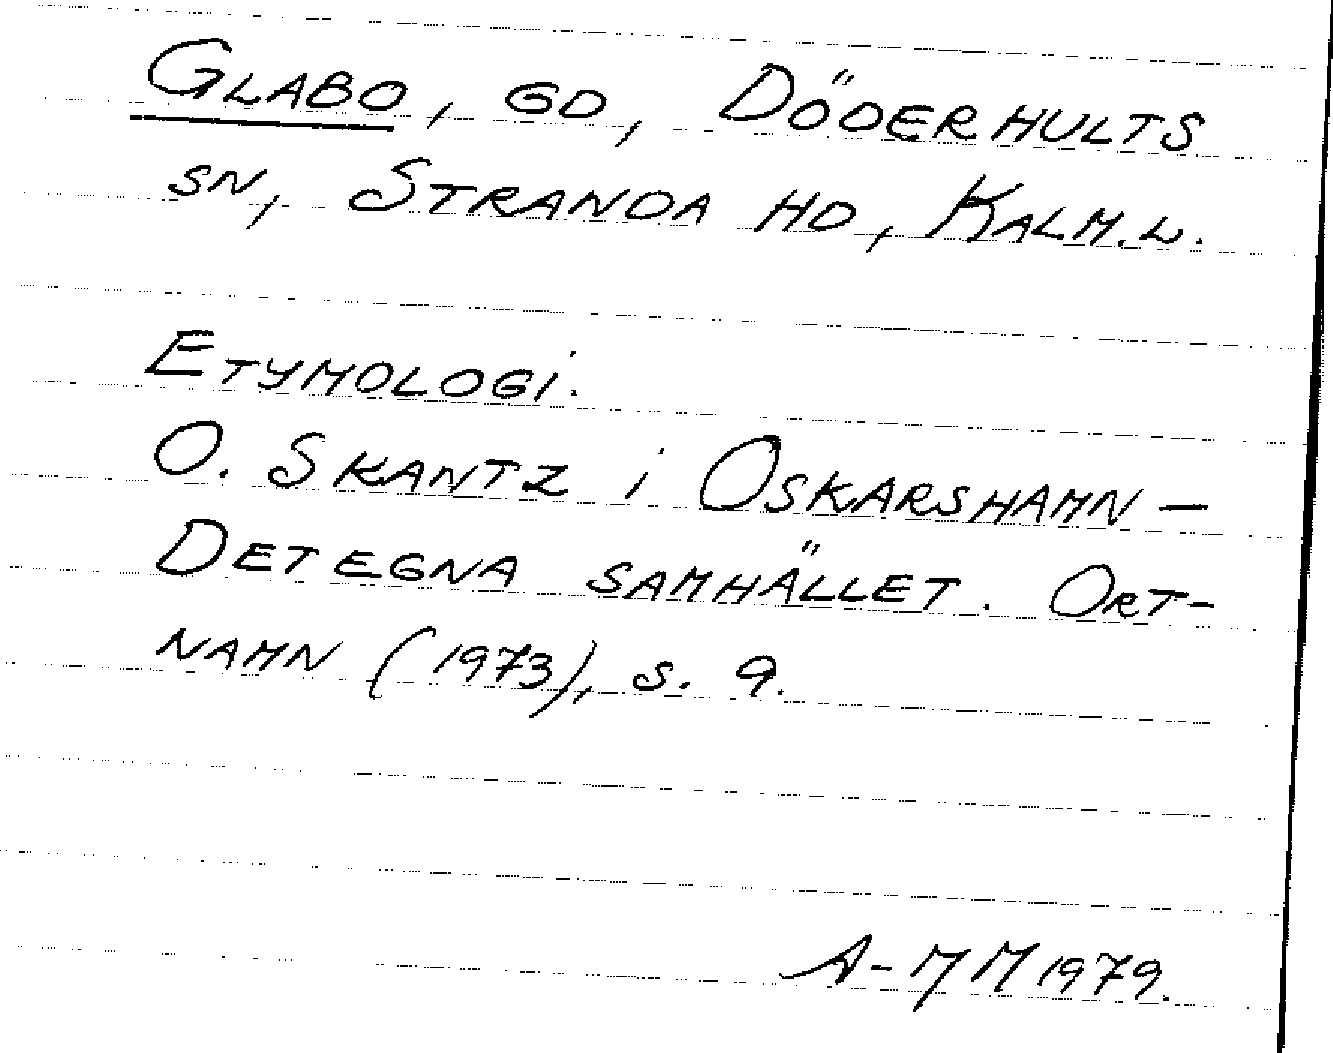 GLABO, GD, DÖDERHULTS
SN, STRANDA HD, KALM. L.
ETYMOLOGI.
O. SKANTZ i OSKARSHAMN –
DET EGNA SAMHÄLLET. ORT-
NAMN (1973), S. 9.
A-MM 1979.